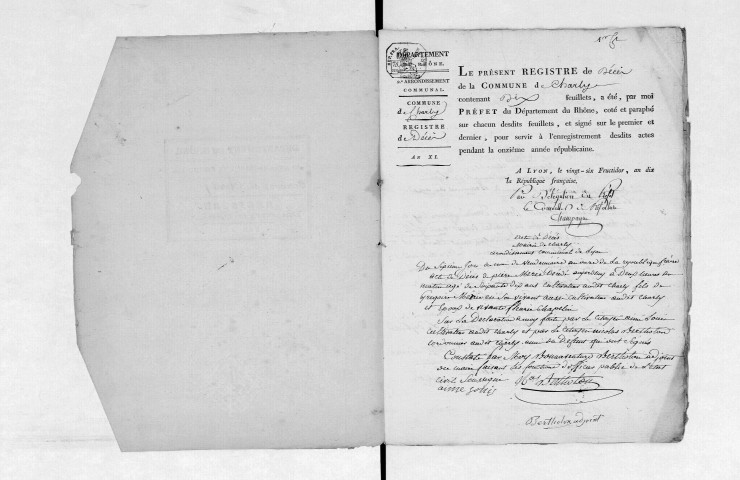 DÉPARTEMENT
DU RHÔNE.
ARRONDISSEMENT
COMMUNAL.
COMMUNE
de Charly
REGISTRE
de Décès
AN XI.
LE PRÉSENT REGISTRE de Décès
de la COMMUNE de Charly
contenant Dix feuillets, a été, par moi
PRÉFET du Département du Rhône, coté et paraphé
sur chacun desdits feuillets, et signé sur le premier et
dernier, pour servir à l'enregistrement desdits actes
pendant la onzième année républicaine.
A LYON, le vingt-six Fructidor, an dix
de la République française.
Par Délégation du Préfet
le Conseiller de Préfecture
Champagne
acte de Décès
Mairie de charly
arrondissement communal de Lyon
Du Septième jour de vendemiaire an onze de la republique
acte de Décès de pierre décédé aujourdhui à Deux heures du
matin agé de Soixante dix ans cultivateur audit charly fils de
Gregoire en son vivant aussi cultivateur audit charly
et Epoux de
Sur la Declaration à moy faite par le citoyen
cultivateur audit charly et par le citoyen nicolas Bertholon
audit charly ami du Défunt qui ont Signés
Constaté par Moy Bonnaventure Bertholon adjoint
du maire faisant les fonctions d'officier public de l'état
civil Soussigné Bertholon
aimé
Bertholon adjoint